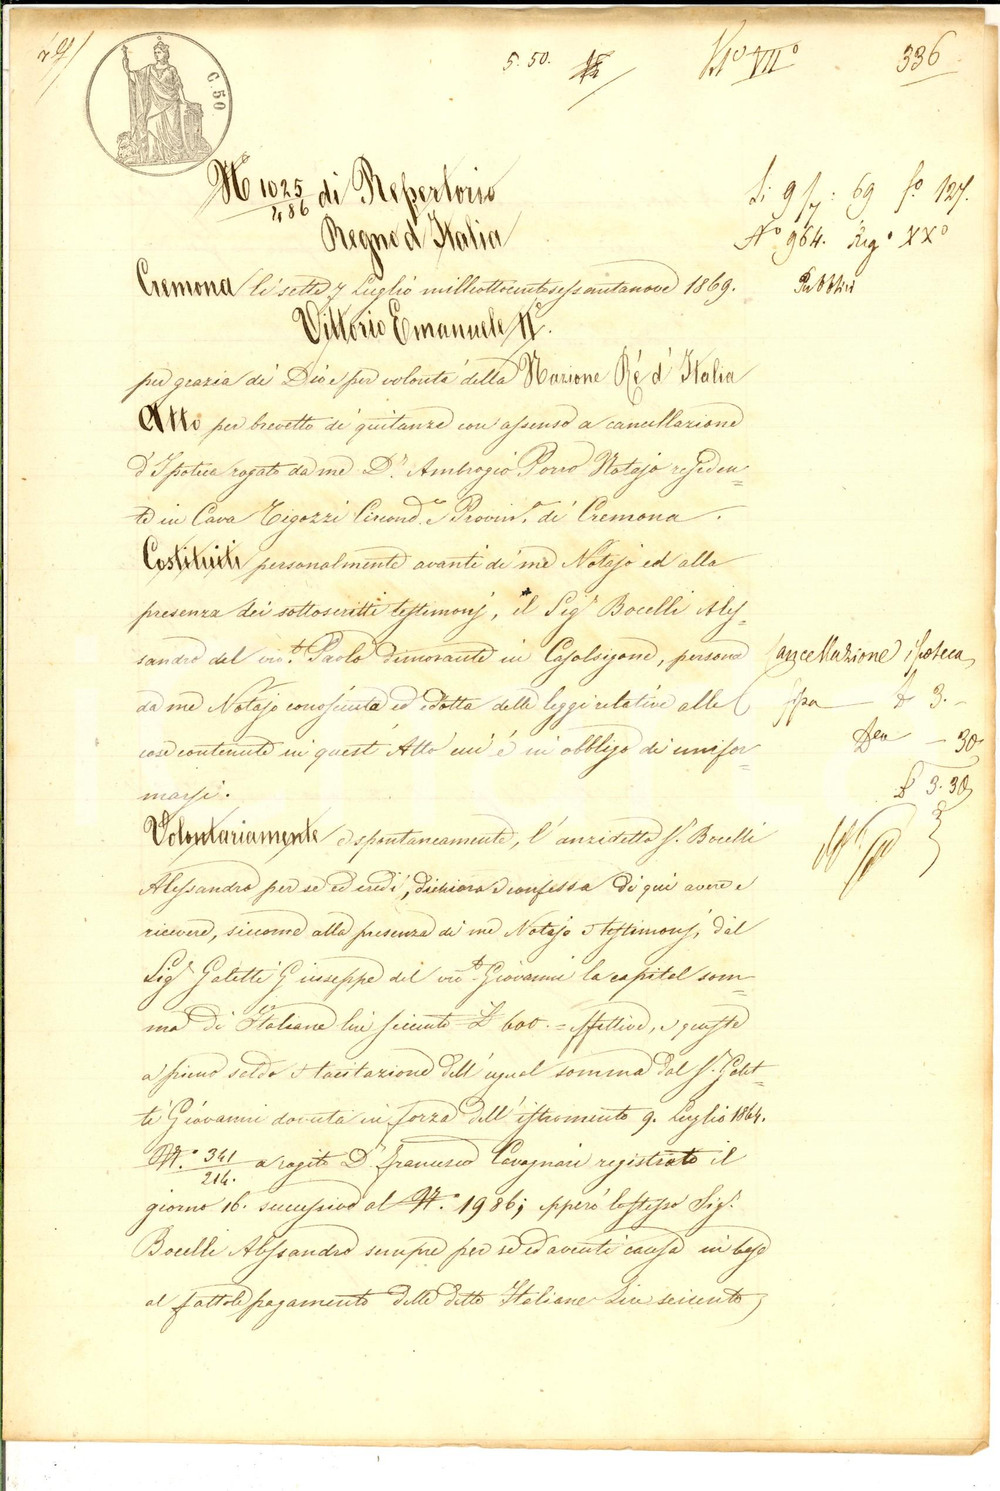 5. 50.
VIIº
336
C. 50
Nº 1025/486 di Repertorio
Regno d'Italia
Li 9/7: 69 fº 127.
Nº 964. Regº XXº
Pubblici
Cremona li sette 7 Luglio milleottocentosessantanove 1869.
Vittorio Emanuele IIº.
per grazia di Dio e per volontà della Nazione Ré d'Italia
Atto per brevetto di quitanza con assenso a cancellazione
d'Ipoteca rogato da me D.r Ambrogio Porro Notajo residen=
te in Cava Tigozzi Circond.e Provin.a di Cremona.
Costituiti personalmente avanti di me Notajo ed alla
presenza dei sottoscritti testimonj, il Sig.r Bocelli Ales=
sandro del viv.t Paolo dimorante in Casalsigone, persona
da me Notajo conosciuta ed edotta delle leggi relative alle
cose contenute in quest'Atto cui é in obbligo di unifor=
marsi.
Cancellazione ipoteca
fssa £ 3. -
Den - 30
£ 3. 30
Volontariamente e spontaneamente, l'anzidetto S.r Bocelli
Alessandro per se ed eredi, dichiara e confessa di qui avere e
ricevere, siccome alla presenza di me Notajo e testimonj, dal
Sig.r Galetti Giuseppe del viv.t Giovanni la capital som=
ma di Italiane lire seicento £ 600.= effettive, e queste
a pieno saldo e tacitazione dell'egual somma dal S.r Galet=
ti Giovanni dovuta in forza dell'istromento 9. Luglio 1864.
N.º 341/214. a rogito D.r Francesco Cavagnari registrato il
giorno 16. successivo al N.º 1986; epperó lo stesso Sig.r
Bocelli Alessandro sempre per se ed aventi causa in base
al fattole pagamento delle dette Italiane Lire seicento,